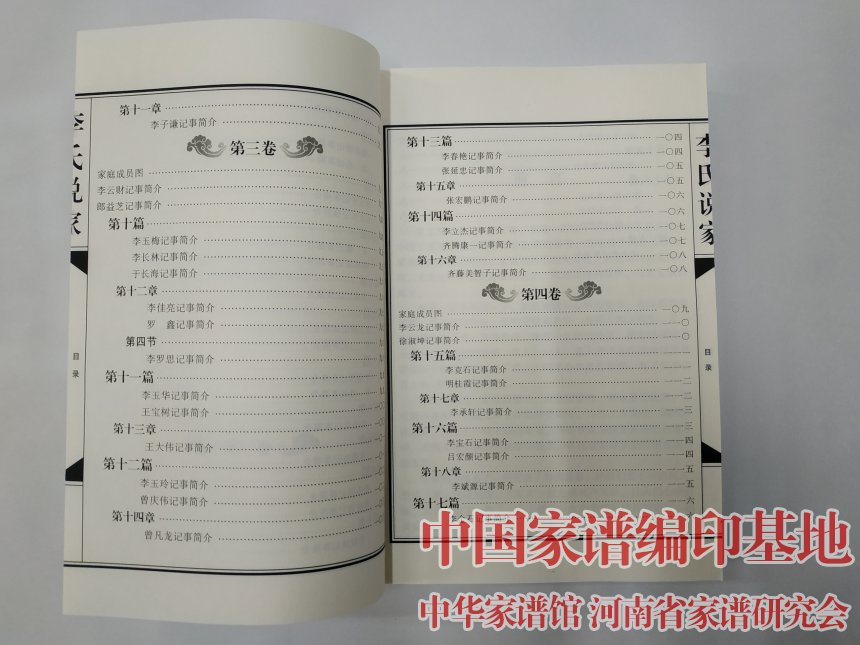 李氏说家
目录
第十一章
李子谦记事简介
第三卷
家庭成员图
李云财记事简介
郎益芝记事简介
第十篇
李玉梅记事简介
李长林记事简介
于长海记事简介
第十二章
李佳亮记事简介
罗 鑫记事简介
第四节
李罗思记事简介
第十一篇
李玉华记事简介
王宝树记事简介
第十三章
王大伟记事简介
第十二篇
李玉玲记事简介
曾庆伟记事简介
第十四章
曾凡龙记事简介
第十三篇 一〇四
李春艳记事简介 一〇四
张延忠记事简介 一〇五
第十五章 一〇五
张宏鹏记事简介 一〇六
第十四篇 一〇六
李立杰记事简介 一〇七
齐腾康一记事简介 一〇七
第十六章 一〇八
齐藤美智子记事简介 一〇八
第四卷
家庭成员图 一〇九
李云龙记事简介 一一〇
徐淑坤记事简介 一一〇
第十五篇 一一一
李克石记事简介 一一一
明桂霞记事简介 一一二
第十七章 一一二
李承轩记事简介 一一三
第十六篇 一一三
李宝石记事简介 一一四
吕宏颜记事简介 一一四
第十八章 一一五
李斌源记事简介 一一五
第十七篇 一一六
李氏说家
目录
中国家谱编印基地
中华家谱馆 河南省家谱研究会